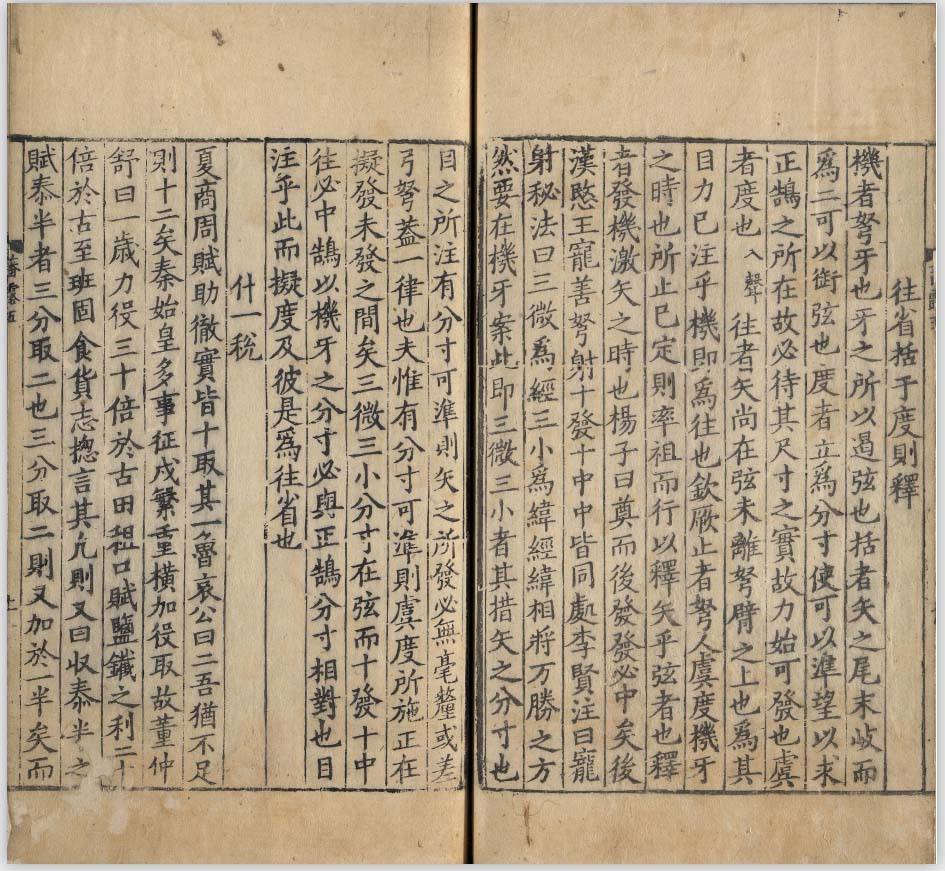 往省括于度則釋
機者弩牙也牙之所以遏弦也括者矢之尾末岐而
爲二可以銜弦也度者立爲分寸使可以準望以求
正鵠之所在故必待其尺寸之實故力始可發也虞
者度也入聲往者矢尚在弦未離弩臂之上也爲其
目力已注乎機即爲往也欽厥止者弩人虞度機牙
之時也所止已定則率祖而行以釋矢乎弦者也釋
者發機激矢之時也楊子曰奠而後發發必中矣後
漢愍王寵善弩射十發十中中皆同處李賢注曰寵
射秘法曰三微爲經三小爲緯經緯相將万勝之方
然要在機牙案此即三微三小者其措矢之分寸也
目之所注有分寸可準則矢之所發必無毫釐或差
弓弩蓋一律也夫惟有分寸可準則虞度所施正在
擬發未發之間矣三微三小分寸在弦而十發十中
往必中鵠以機牙之分寸必與正鵠分寸相對也目
注乎此而擬度及彼是爲往省也
什一稅
夏商周賦助徹實皆十取其一魯哀公曰二吾猶不足
則十二矣秦始皇多事征戍繁重橫加役取故董仲
舒曰一歲力役三十倍於古田租口賦鹽鐵之利二十
倍於古至班固食貨志揔言其凡則又曰収泰半之
賦泰半者三分取二也三分取二則又加於一半矣而